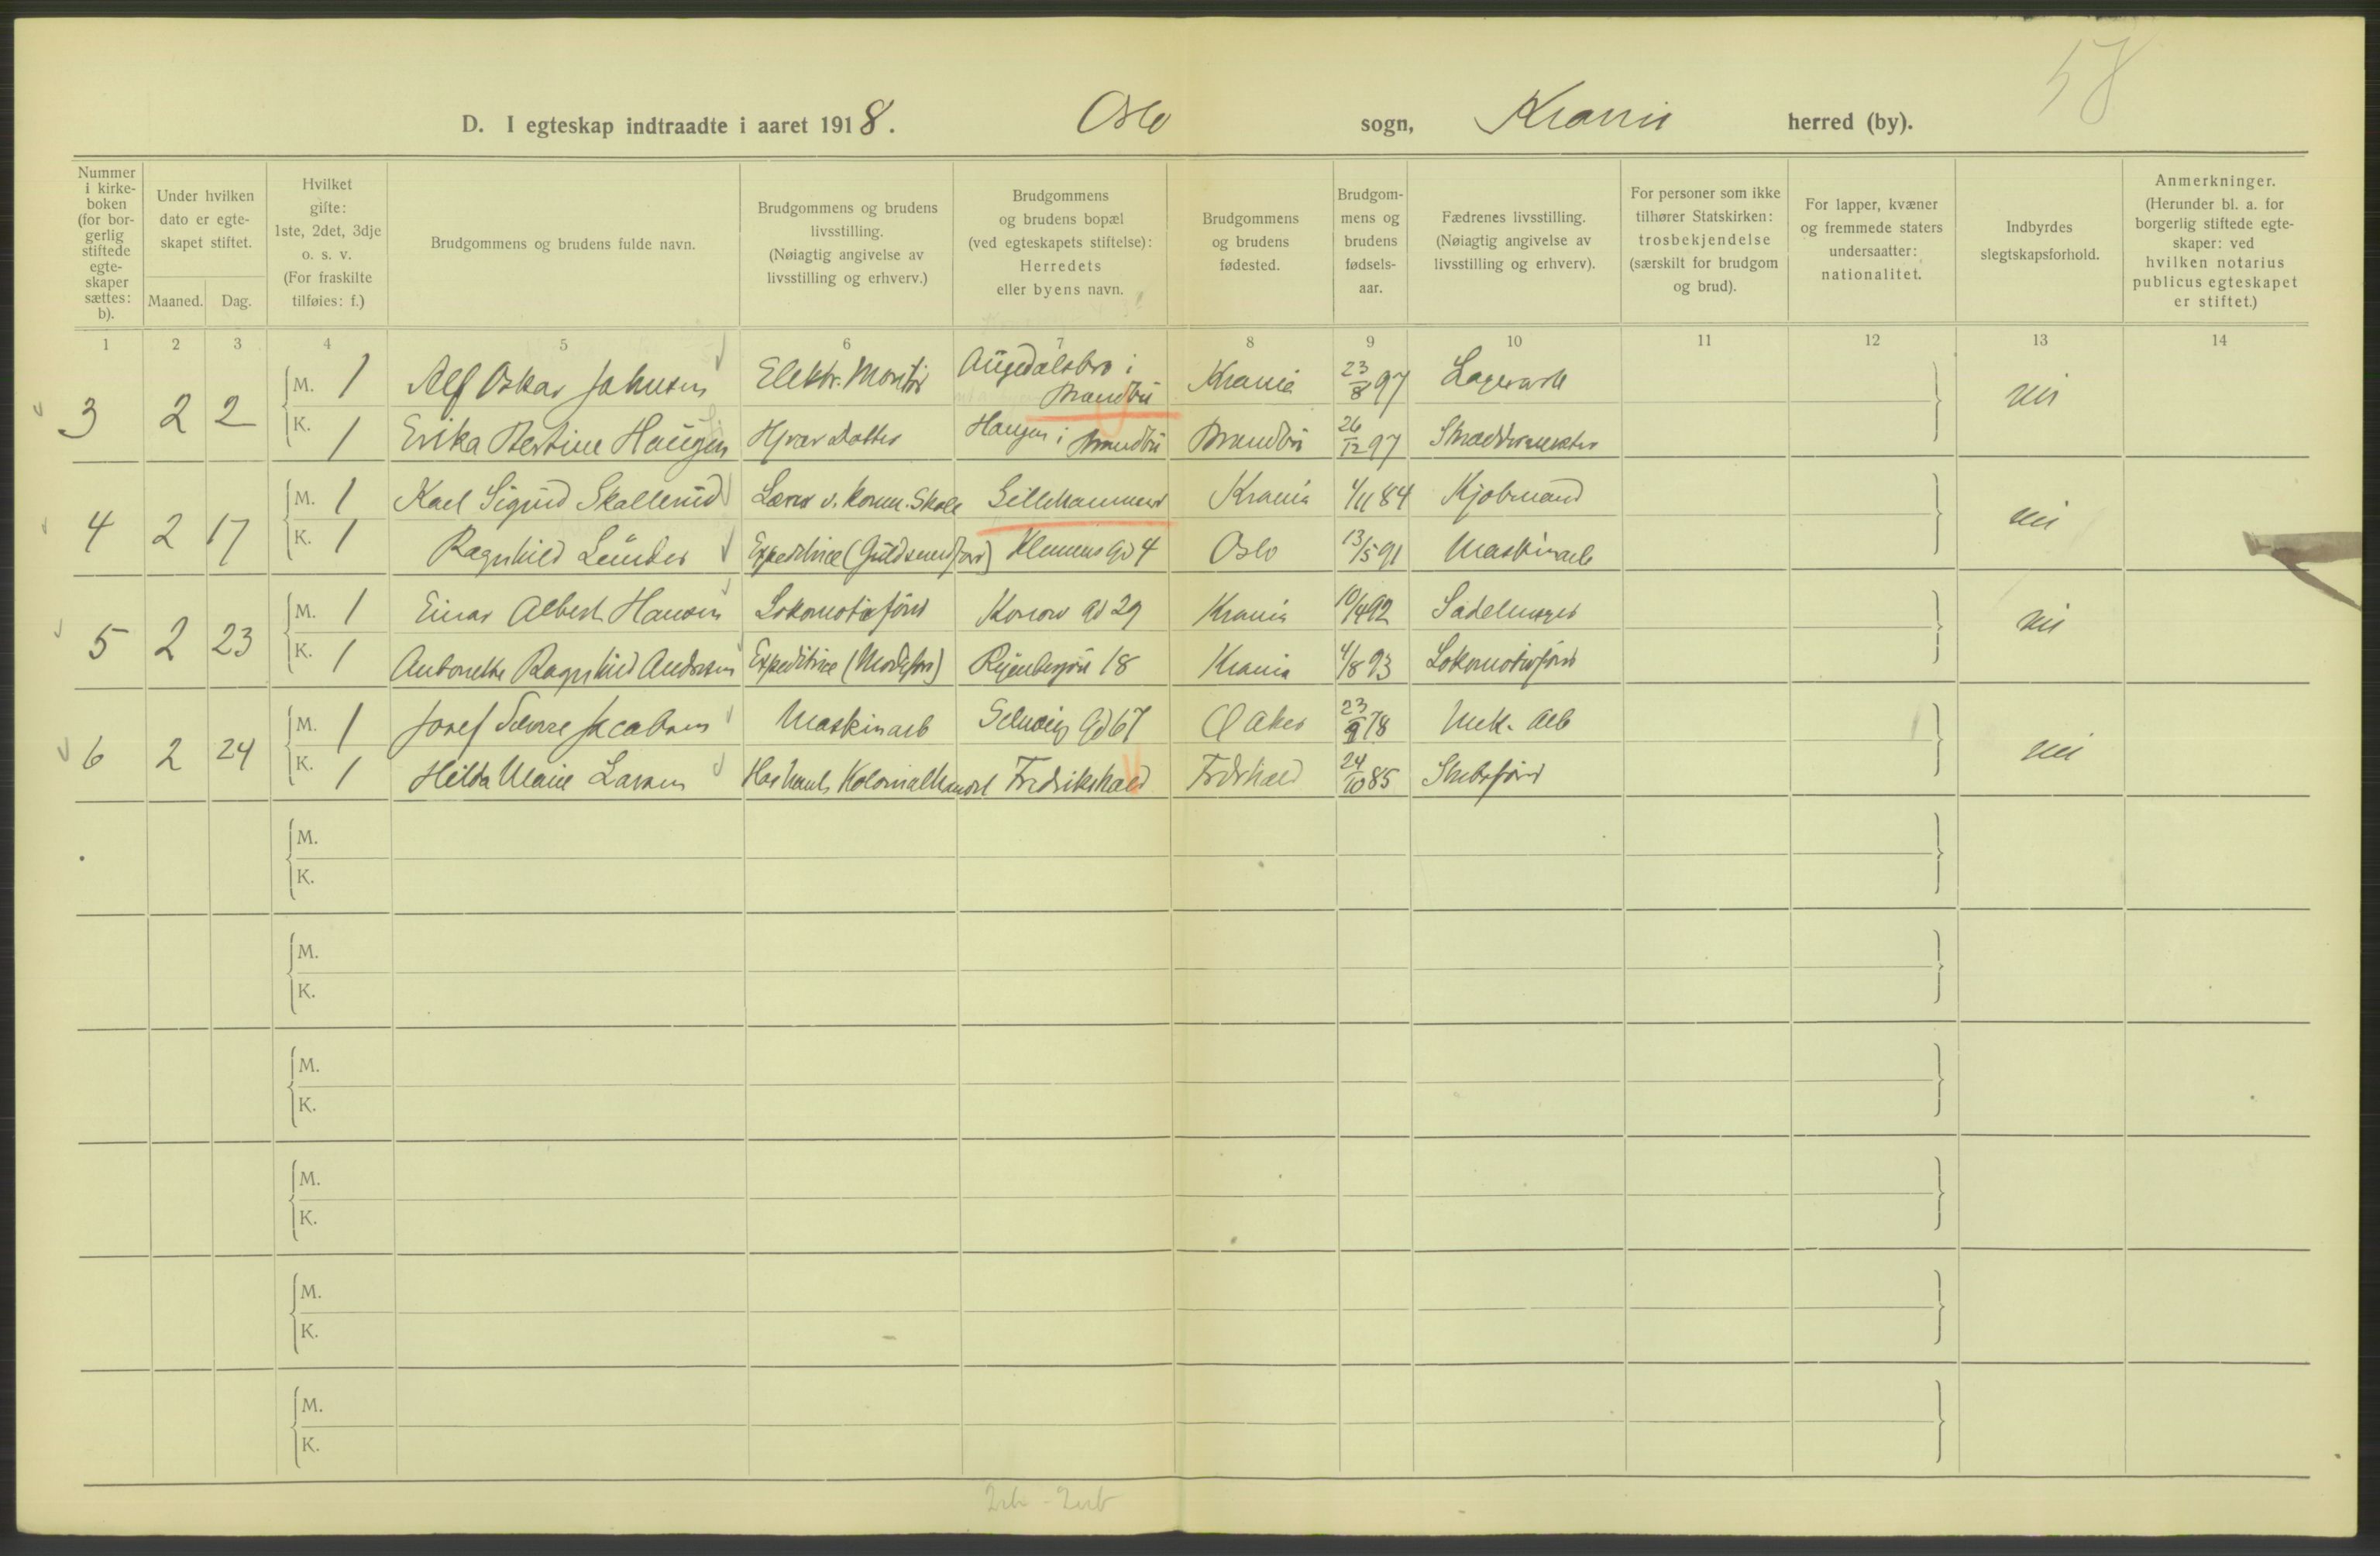 58
D. I egteskap indtraadte i aaret 1918. Oslo sogn, Krania herred (by).
Nummer i kirke-boken (for bor-gerlig stiftede egte-skaper sættes: b).
Under hvilken dato er egte-skapet stiftet.
Maaned. Dag.
Hvilket gifte: 1ste, 2det, 3dje o. s. v. (For fraskilte tilføies: f.)
Brudgommens og brudens fulde navn.
Brudgommens og brudens livsstilling. (Nøiagtig angivelse av livsstilling og erhverv.)
Brudgommens og brudens bopæl (ved egteskapets stiftelse): Herredets eller byens navn.
Brudgommens og brudens fødested.
Brudgom-mens og brudens fødsels-aar.
Fædrenes livsstilling. (Nøiagtig angivelse av livsstilling og erhverv).
For personer som ikke tilhører Statskirken: trosbekjendelse (særskilt for brudgom og brud).
For lapper, kvæner og fremmede staters undersaatter: nationalitet.
Indbyrdes slegtskapsforhold.
Anmerkninger. (Herunder bl. a. for borgerlig stiftede egte-skaper: ved hvilken notarius publicus egteskapet er stiftet.)
1 2 3 4 5 6 7 8 9 10 11 12 13 14
3 2 2 M. 1 Alf Oskar Johnsen Elektr. Montør Augedalsbro i Brandbu Krania 23/8 97 Lagerarb nei
K. 1 Erika Bertine Haugen Hjvær Datter Haugen i Brandbu Brandbu 26/12 97 Skræddermester
4 2 17 M. 1 Karl Sigurd Skallerud Lærer v. komm. Skole Lillehammer Krania 4/11 84 Kjøbmand nei
K. 1 Ragnhild Lunder Expeditrice (Guldsmedforr) Klemens Gd 4 Oslo 13/5 91 Maskinarb
5 2 23 M. 1 Einar Albert Hansen Lokomotivfører Konow Gd 29 Krania 10/4 92 Sadelmager nei
K. 1 Antonette Ragnhild Andersen Expeditrice (Modeforr) Ryenbergvn 18 Krania 4/8 93 Lokomotivfører
6 2 24 M. 1 Josef Sverre Jacobsen Maskinarb Schweig Gd 67 Ø Aker 23/9 78 Mek. Arb nei
K. 1 Hilda Marie Larsen Har havt Kolonialhandel Fredrikshald Frdrhald 24/10 85 Skibsfører
M.
K.
M.
K.
M.
K.
M.
K.
M.
K.
M.
K.